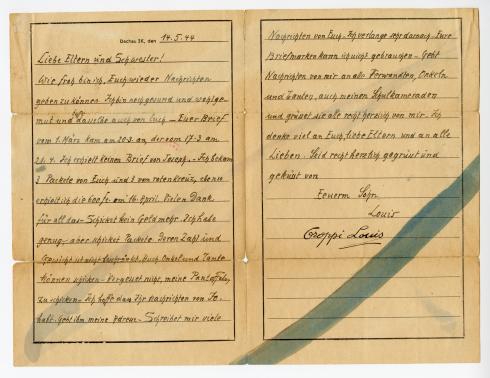 Dachau 3K, den 14.5.44
Liebe Eltern und Schwester!
Wie froh bin ich, Euch wieder Nachrichten
geben zu können. Ich bin noch gesund und wohlge-
mut und dasselbe auch von Euch – Euer Brief
vom 1. März kam am 20.3. an, der vom 17.3. am
21.4. Ich erhielt keinen Brief von Joseph. – Ich bekam
3 Packete von Euch und 3 von rotenkreuz, ebenso
erhielt ich die 600 fr. am 16. April. Vielen Dank
für all das – Schicket kein Geld mehr. Ich habe
genug, – aber schicket Packete. Deren Zahl und
Gewicht ist nicht Auch Onkel und Tante
können schicken – Vergesset nicht, meine Pantoffeln
zu schicken – Ich hoffe dass Ihr Nachrichten von Jo.
habt. Gebt ihm meine Adress – Schreibet mir viele
Nachrichten von Euch. Ich verlange sehr darnach. – Eure
Briefmarken kann ich nicht gebrauchen – Gebt
Nachrichten von mir an alle Verwandten, Onkeln
und Tanten, auch meinen Schulkameraden
und grüsset sie alle recht herzlich von mir. Ich
denke viel an Euch, liebe Eltern und an alle
Lieben. Seid recht herzlich gegrüsst und
geküsst von
Euerm Sohn
Louis
Groppi Louis